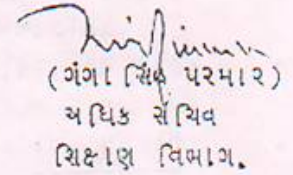 (ગંગા સિંહ પરમાર)
અધિક સચિવ
શિક્ષણ વિભાગ.